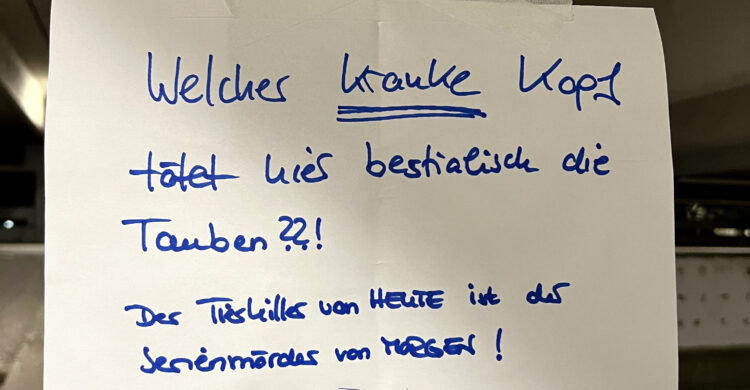 Welcher kranke Kopf
tötet hier bestialisch die
Tauben??!
Der Tierkiller von HEUTE ist der
Serienmörder von MORGEN!